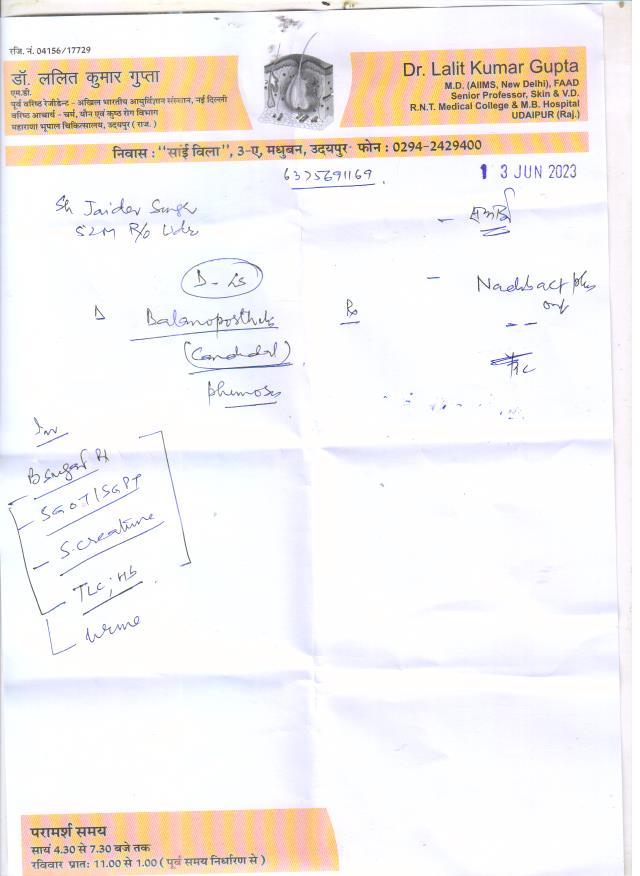 रजि. नं. 04156/17729
डॉ. ललित कुमार गुप्ता
एम.डी.
पूर्व वरिष्ठ रेजीडेन्ट - अखिल भारतीय आयुर्विज्ञान संस्थान, नई दिल्ली
वरिष्ठ आचार्य - चर्म, यौन एवं कुष्ठ रोग विभाग
महाराणा भूपाल चिकित्सालय, उदयपुर ( राज. )
Dr. Lalit Kumar Gupta
M.D. (AIIMS, New Delhi), FAAD
Senior Professor, Skin & V.D.
R.N.T. Medical College & M.B. Hospital
UDAIPUR (Raj.)
निवास : "सांई विला", 3-ए, मधुबन, उदयपुर फोन : 0294-2429400
6375691169
1 3 JUN 2023
Sh Jaidev Singh
52M R/o
Δ Balanoposthitis
(Candidal)
phimosis
Rx
Inv
B sugar R
- SGOT/SGPT
- S. creatinine
- TLC; Hb
urine
परामर्श समय
सायं 4.30 से 7.30 बजे तक
रविवार प्रातः 11.00 से 1.00 ( पूर्व समय निर्धारण से )